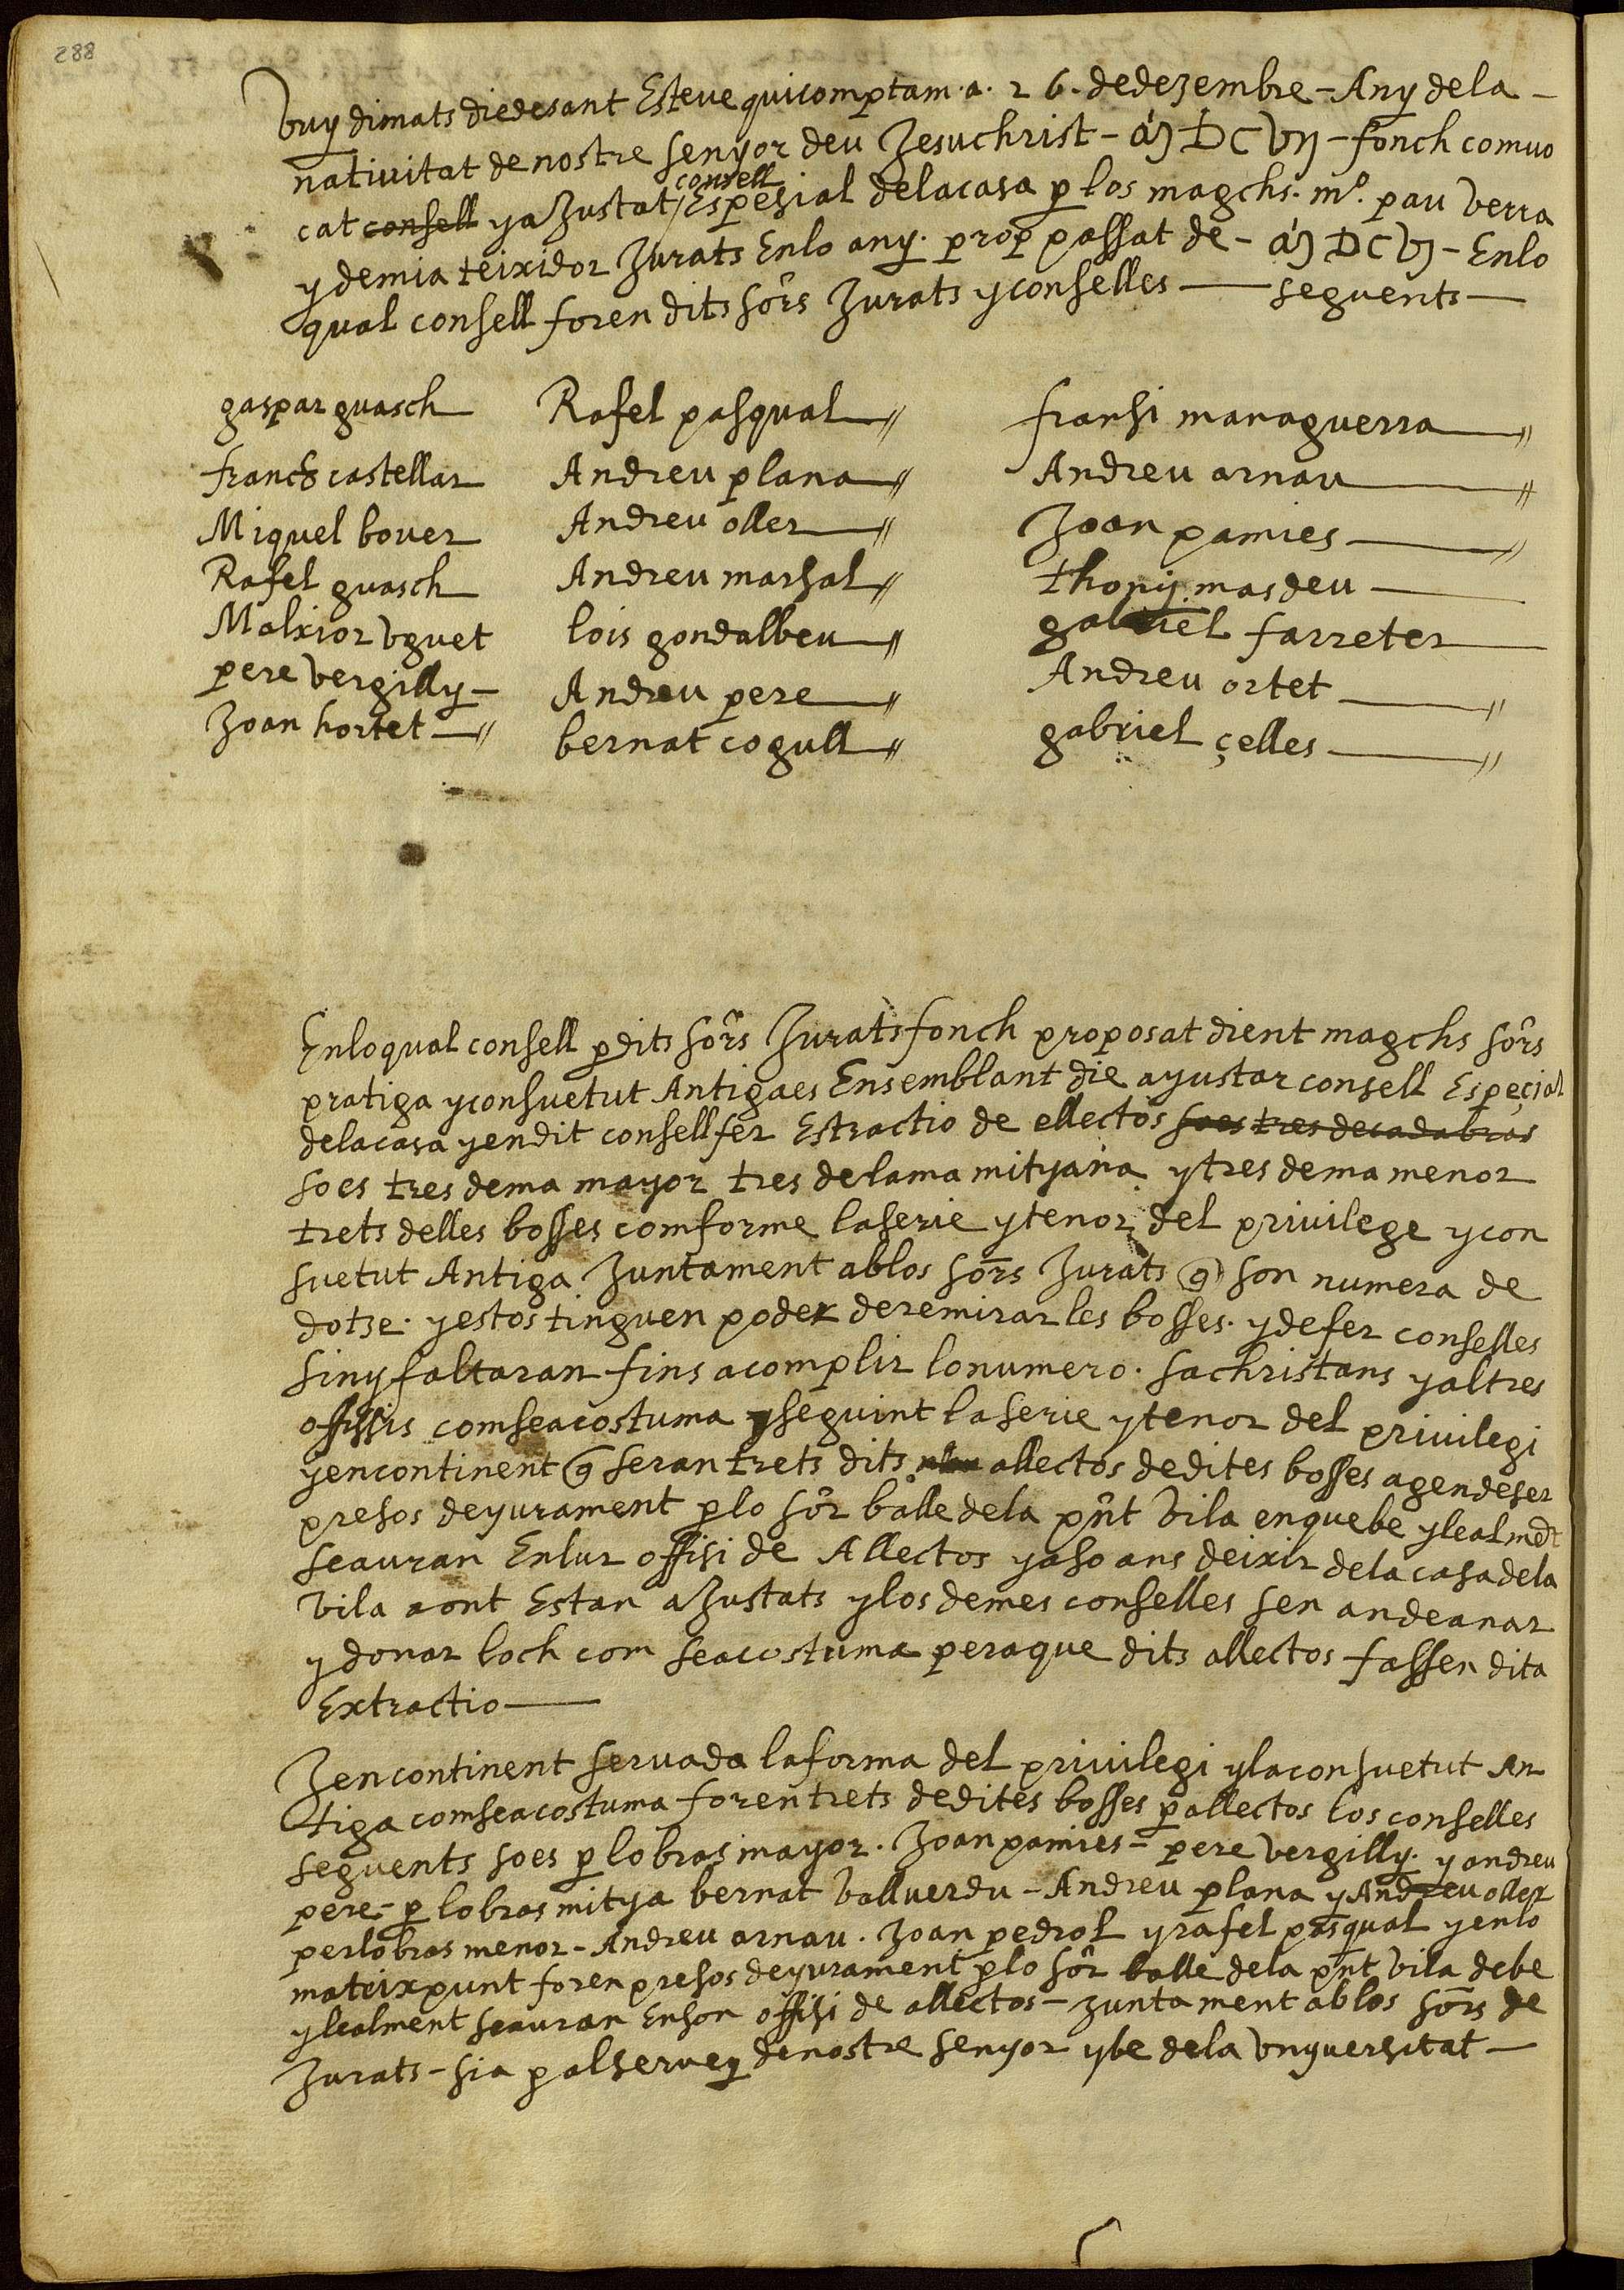 288
Vuy dimats diedesant Esteve quicomptam·a· 26· dedezembre – Any dela –
nativitat de nostre senyor deu Jesuchrist – DC VII – fonch comvo
consell
cat consell ya Justat Espezial delacasa p los magchs· mº· pau verra
y demia teixidor Jurats Enlo any· prop passat de – DC VI – Enlo
qual consell foren dits sors Jurats yconselles — seguents —
gaspar guasch
franch castellar
Miquel bover
Rafel guasch
Malxior vguet
pere vergilly –
Joan hortet —//
Rafel pasqual —//
Andreu plana —//
Andreu oller —//
Andreu marsal —//
lois gondalbeu —//
Andreu pere —//
bernat cogull —//
fransi managuerra —//
Andreu arnau —//
Joan pamies —//
thony masdeu —
gabriel farreter —
Andreu ortet —//
gabriel çelles —//
Enloqual consell pdits sors Jurats fonch proposat dient magchs sors
pratiga yconsuetut Antigaes Ensemblant die ayustar consell Espeçial
delacasa yendit consell fer Estractio de ellectos soes tres decadabras
soes tres dema mayor tres delama mityana ytres dema menor
trets delles bosses comforme laserie ytenor del privilege ycon
suetut Antiga Juntament ablos sors Jurats q son numera de
dotze· yestos tinguen poder deremirar les bosses· ydefer conselles
sinyfaltaran fins acomplir lonumero· sachristans yaltres
offissis comseacostuma yseguint laserie ytenor del privilegi
yencontinent q seran trets dits allectos dedites bosses agendeser
presos deyurament plo sor balle dela pnt vila enquebe ylealmet
seauran Enlur offisi de Allectos yaso ans deixir dela casadela
vila aont Estan aJustats ylos demes conselles sen andeanar
ydonar loch com seacostuma peraque dits allectos fassen dita
Extractio —
Jencontinent servada laforma del privilegi ylaconsuetut An
tiga comseacostuma foren trets dedites bosses pallectos los conselles
seguents soes p lobras mayor· Joan pamies – pere vergilly· y andreu
pere – p lobras mitya bernat vallverdu – Andreu plana y Andreu oller
perlobras menor – Andreu arnau· Joan pedrol yrafel pasqual yenlo
mateix punt foren presos deyurament plo sor balle dela pnt vila debe
ylealment seauran Enson offisi de allectos – Juntament ablos sors de
Jurats – sia palservey denostre senyor ybe dela vnyversitat —